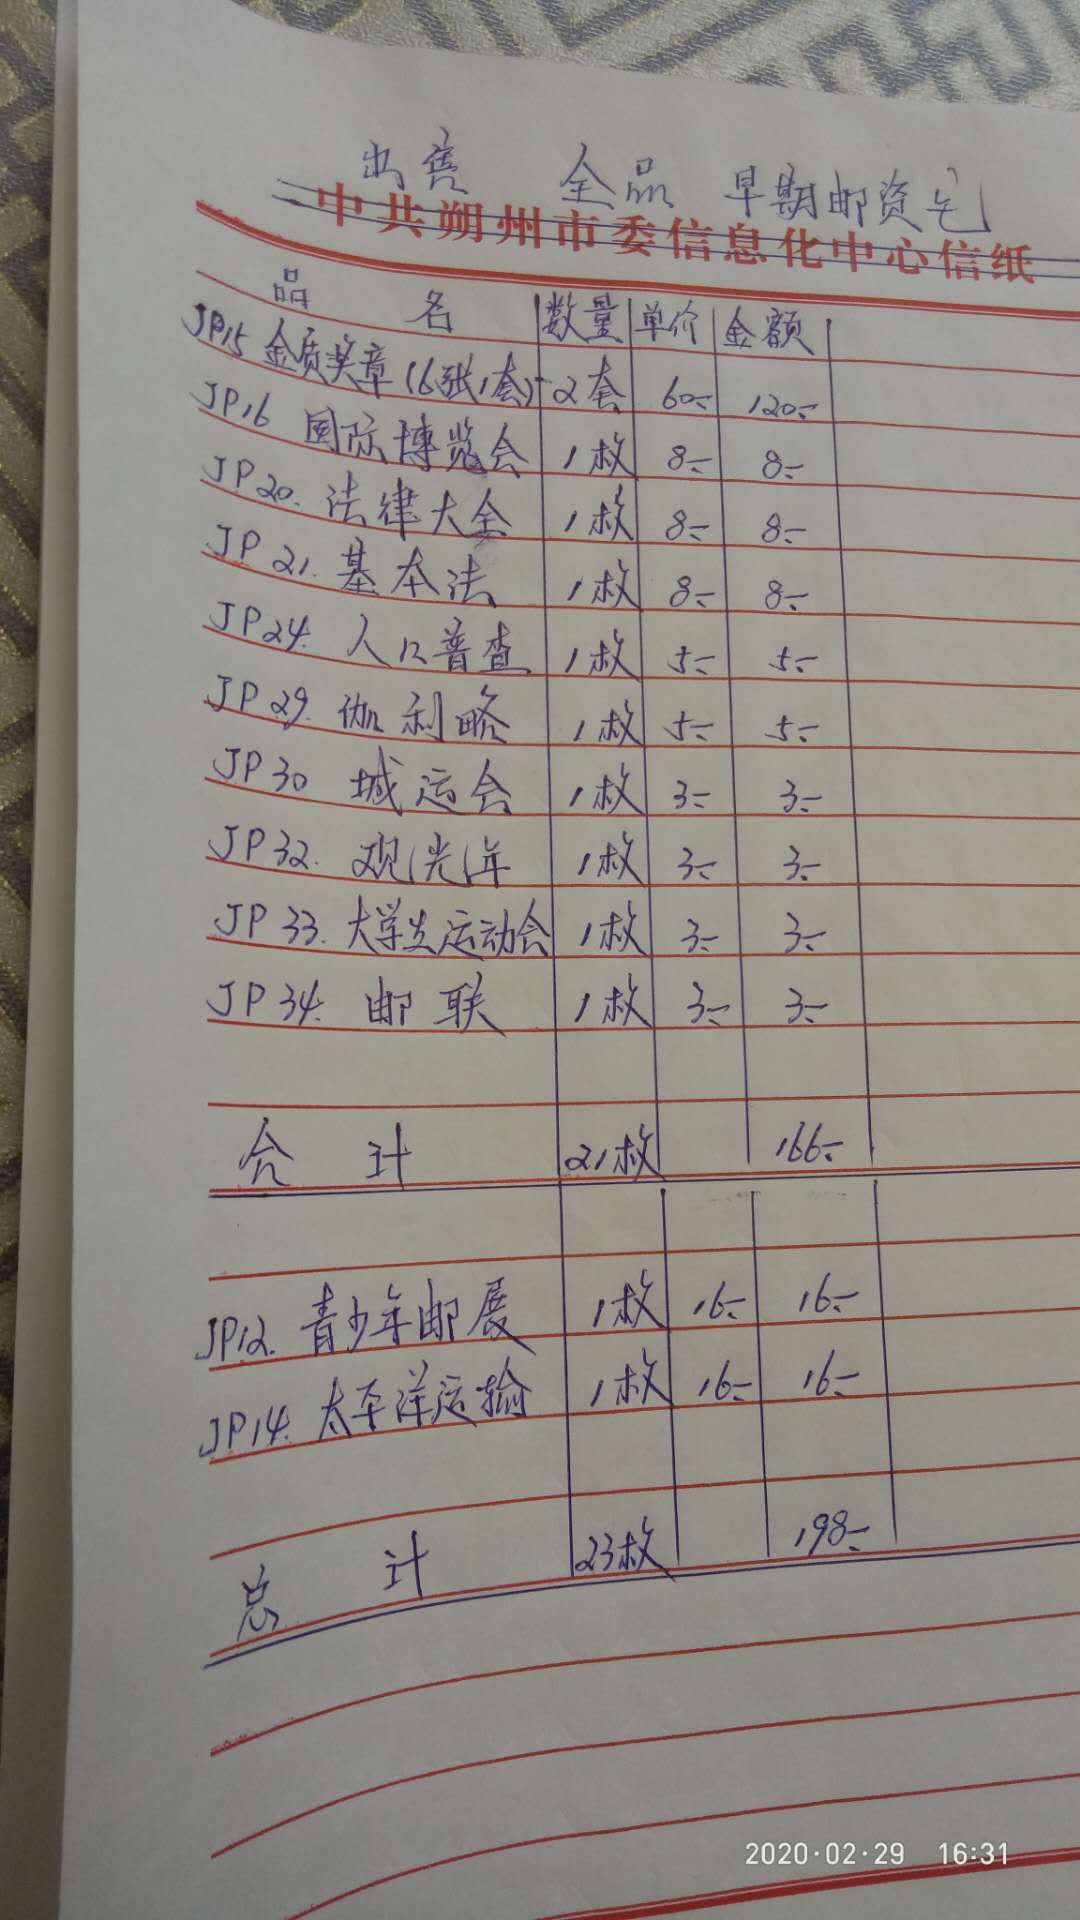 出售 全品 早期邮资片
中共朔州市委信息化中心信纸
品 名 数量 单价 金额
JP15 金质奖章(6张1套) 2套 60- 120-
JP16 国际博览会 1枚 8- 8-
JP20. 法律大会 1枚 8- 8-
JP21. 基本法 1枚 8- 8-
JP24. 人口普查 1枚 5- 5-
JP29. 伽利略 1枚 5- 5-
JP30 城运会 1枚 3- 3-
JP32. 观光年 1枚 3- 3-
JP33. 大学生运动会 1枚 3- 3-
JP34. 邮联 1枚 3- 3-
合 计 21枚 166-
JP12. 青少年邮展 1枚 16- 16-
JP14. 太平洋运输 1枚 16- 16-
总 计 23枚 198-
2020·02·29 16:31